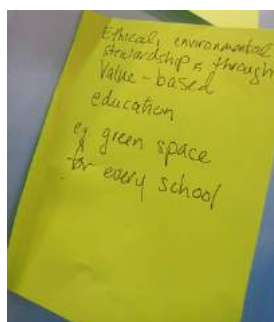 Ethical, environmental
stewardship, through
Value-based
education
eg green space
for every school